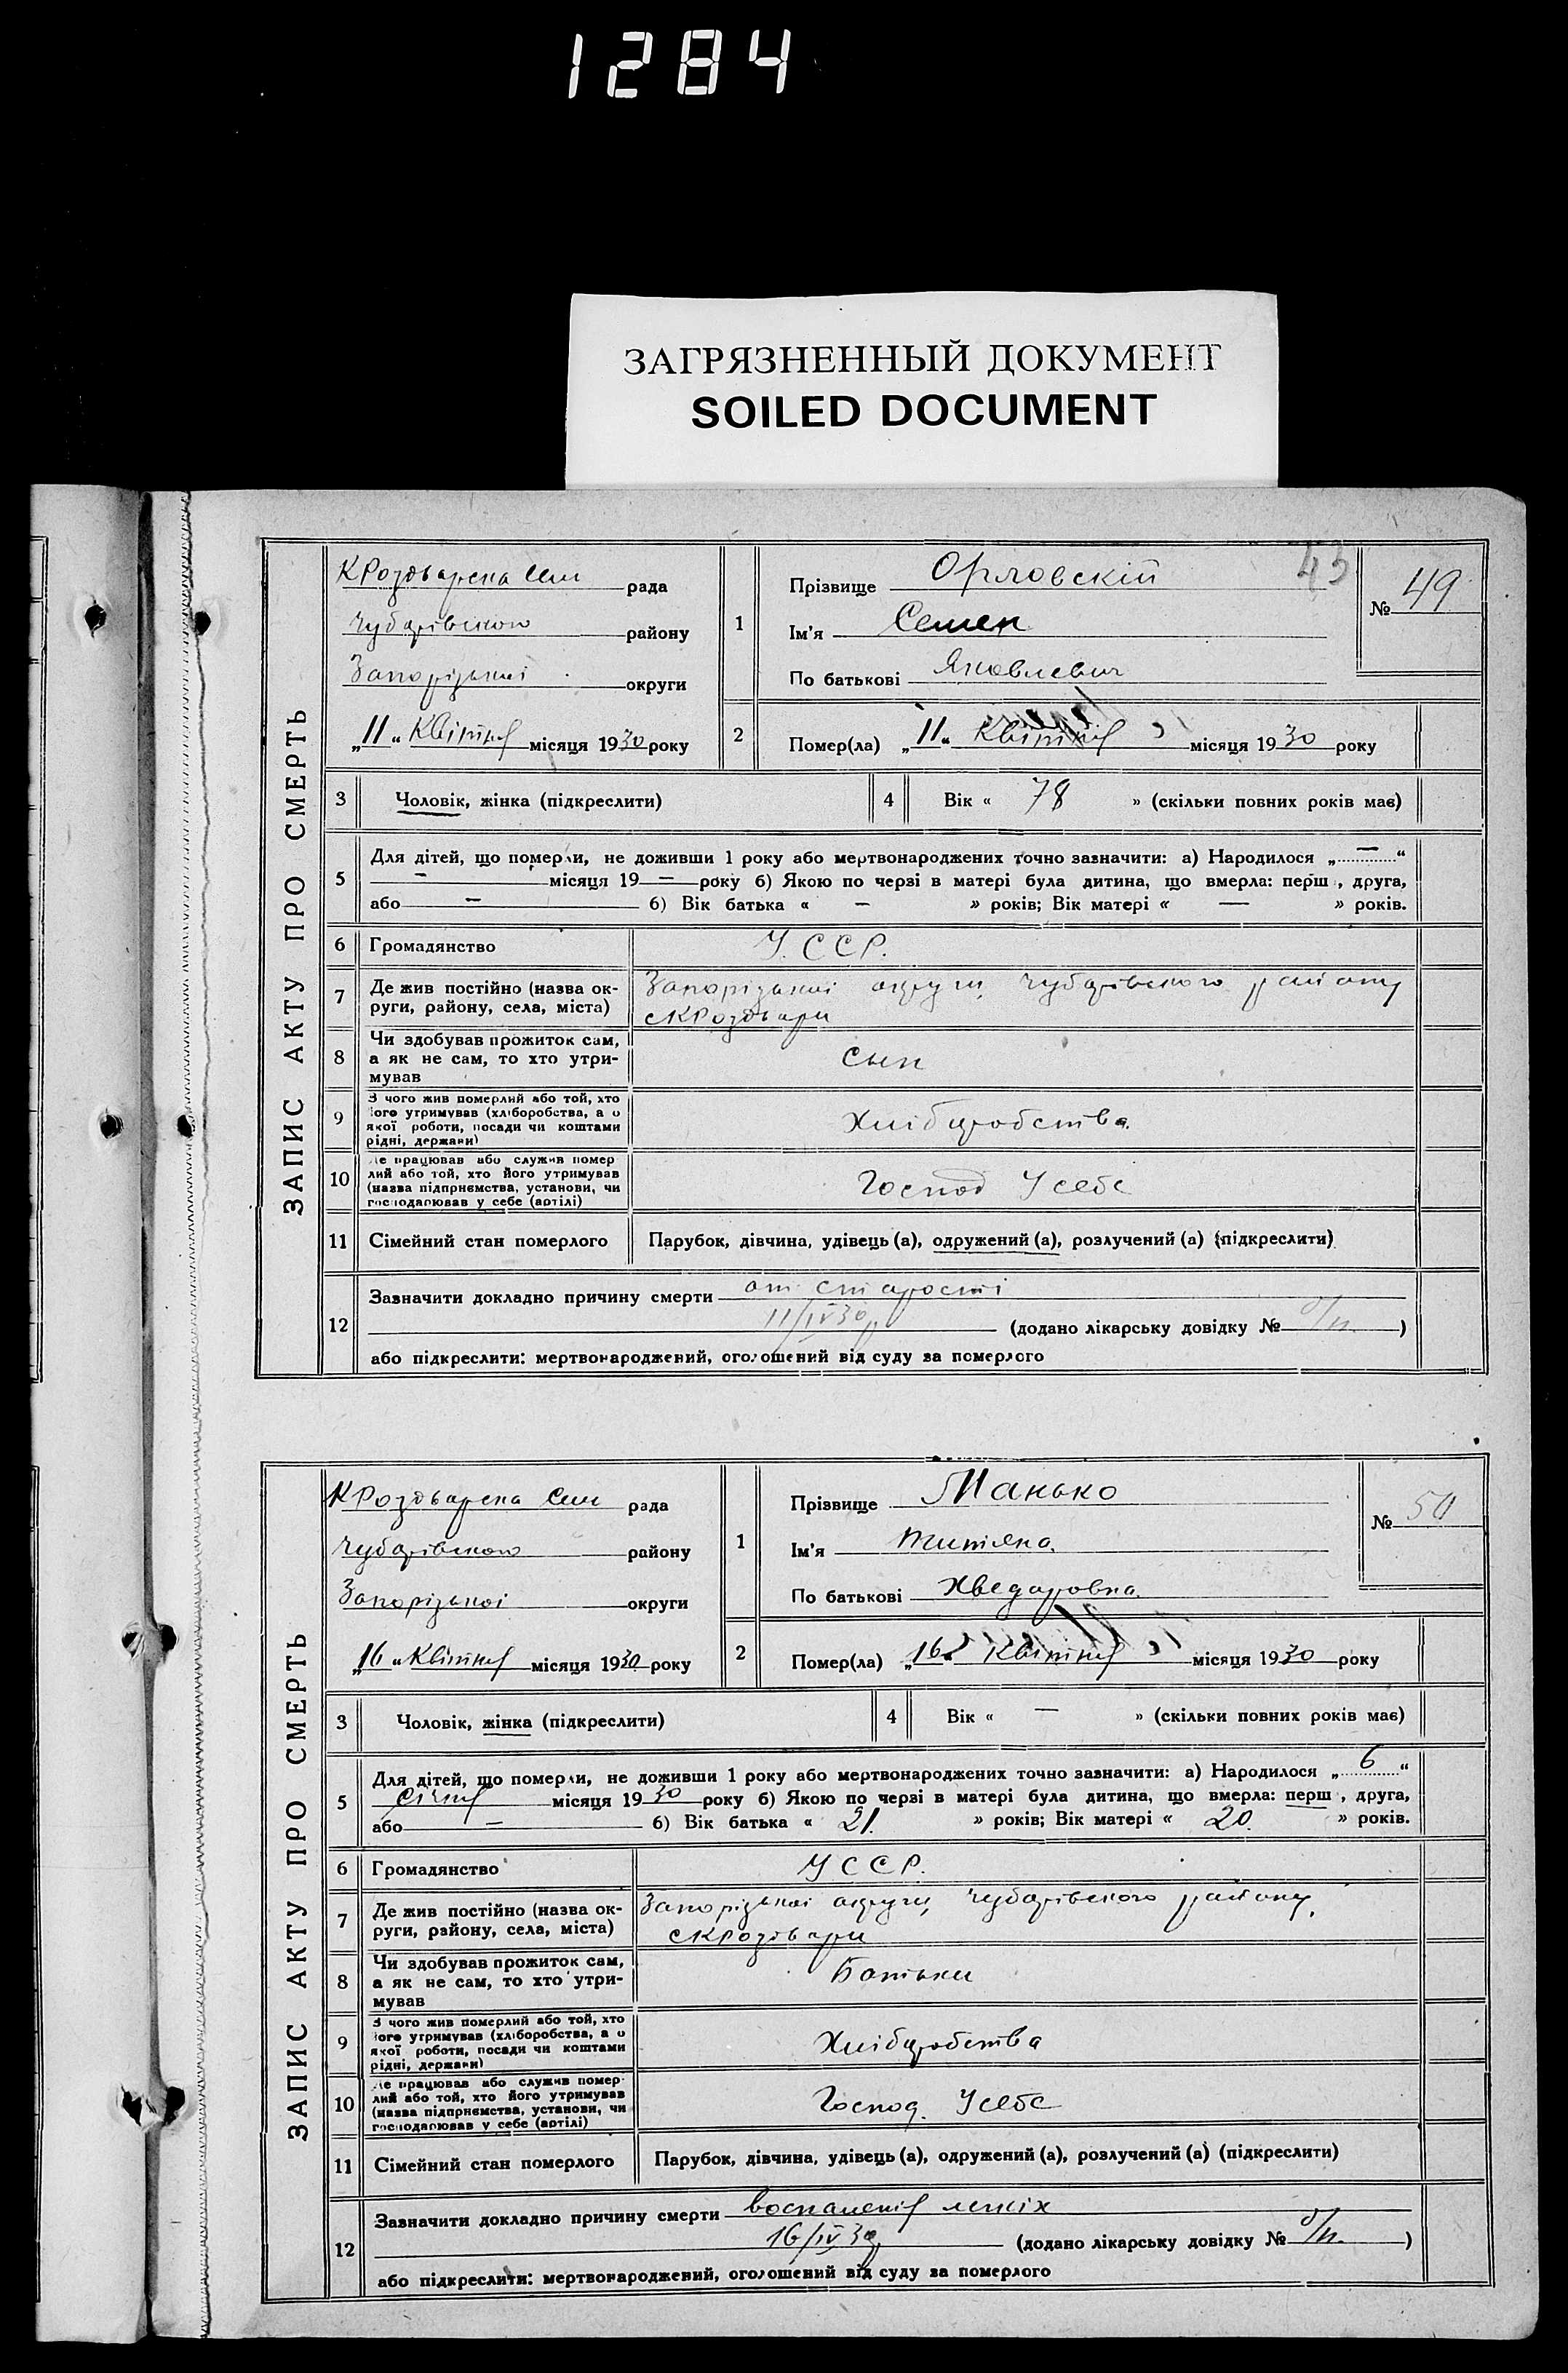 1284
ЗАГРЯЗНЕННЫЙ ДОКУМЕНТ
SOILED DOCUMENT
ЗАПИС АКТУ ПРО СМЕРТЬ
рада
Чубарівського району
Запорізької округи
„11“ Квітня місяця 1930 року
1
Прізвище Орловскій
Ім'я Семен
По батькові Яковлевич
43
№ 49
2
Помер(ла) „11“ Квітня місяця 1930 року
3 Чоловік, жінка (підкреслити)
4 Вік « 78 » (скільки повних років має)
5
Для дітей, що померли, не доживши 1 року або мертвонароджених точно зазначити: а) Народилося „ — “
— місяця 19 — року б) Якою по черзі в матері була дитина, що вмерла: перш , друга,
або — б) Вік батька « — » років; Вік матері « — » років.
6 Громадянство У.ССР.
7 Де жив постійно (назва ок-
руги, району, села, міста)
Запорізькоі округи, Чубарівського району
8 Чи здобував прожиток сам,
а як не сам, то хто утри-
мував
сын
9 З чого жив померлий або той, хто
його утримував (хліборобства, а о
якої роботи, посади чи коштами
рідні, держави)
Хліборобства
10 Де працював або служив помер
лий або той, хто його утримував
(назва підприємства, установи, чи
господарював у себе (артілі)
Господ Усебе
11 Сімейний стан померлого Парубок, дівчина, удівець (а), одружений (а), розлучений (а) (підкреслити)
12
Зазначити докладно причину смерти от старості
11/IV 30р (додано лікарську довідку № б/н. )
або підкреслити: мертвонароджений, оголошений від суду за померлого
ЗАПИС АКТУ ПРО СМЕРТЬ
рада
Чубарівського району
Запорізькоі округи
„16“ Квітня місяця 1930 року
1
Прізвище Манько
Ім'я Титяна
По батькові Хведаровна
№ 50
2
Помер(ла) „16“ Квітня місяця 1930 року
3 Чоловік, жінка (підкреслити)
4 Вік « — » (скільки повних років має)
5
Для дітей, що померли, не доживши 1 року або мертвонароджених точно зазначити: а) Народилося „ 6 “
Січня місяця 1930 року б) Якою по черзі в матері була дитина, що вмерла: перш , друга,
або — б) Вік батька « 21. » років; Вік матері « 20. » років.
6 Громадянство УССР.
7 Де жив постійно (назва ок-
руги, району, села, міста)
Запорізькоі округи, Чубарівського району,
8 Чи здобував прожиток сам,
а як не сам, то хто утри-
мував
Батьки
9 З чого жив померлий або той, хто
його утримував (хліборобства, а о
якої роботи, посади чи коштами
рідні, держави)
Хліборобства
10 Де працював або служив помер-
лий або той, хто його утримував
(назва підприємства, установи, чи
господарював у себе (артілі)
Господ. Усебе
11 Сімейний стан померлого Парубок, дівчина, удівець (а), одружений (а), розлучений (а) (підкреслити)
12
Зазначити докладно причину смерти воспаленія легкіх
16/IV 30р (додано лікарську довідку № б/н. )
або підкреслити: мертвонароджений, оголошений від суду за померлого